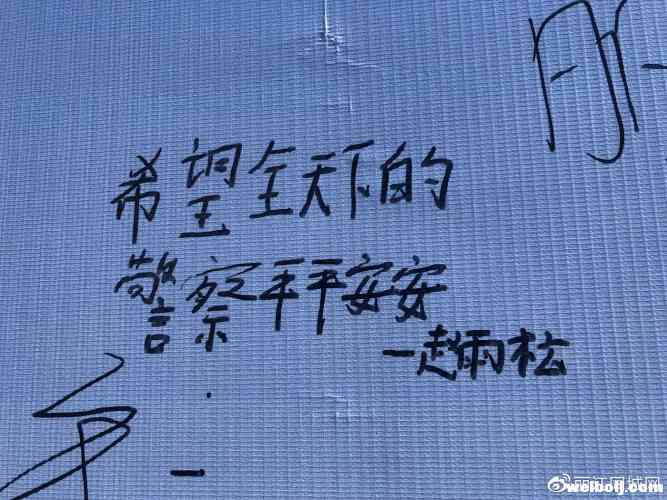 希望全天下的
警察平平安安
一赵雨松
weibolj.com